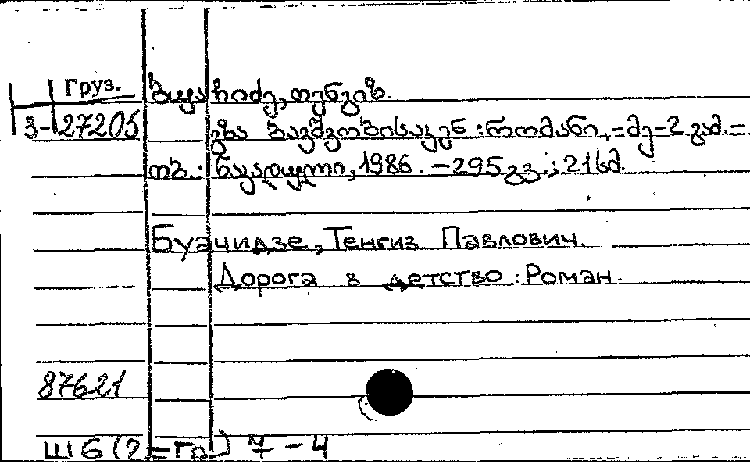 Груз.
3-27205
ბუაჩიძე, თენგიზ.
გზა ბავშვობისაკენ : რომანი. - მე-2 გამ. -
თბ. : ნაკადული, 1986. - 295 გვ. ; 21 სმ.
Буачидзе, Тенгиз Павлович.
Дорога в детство : Роман.
87621
Ш6(2=Гр) 7 - 4